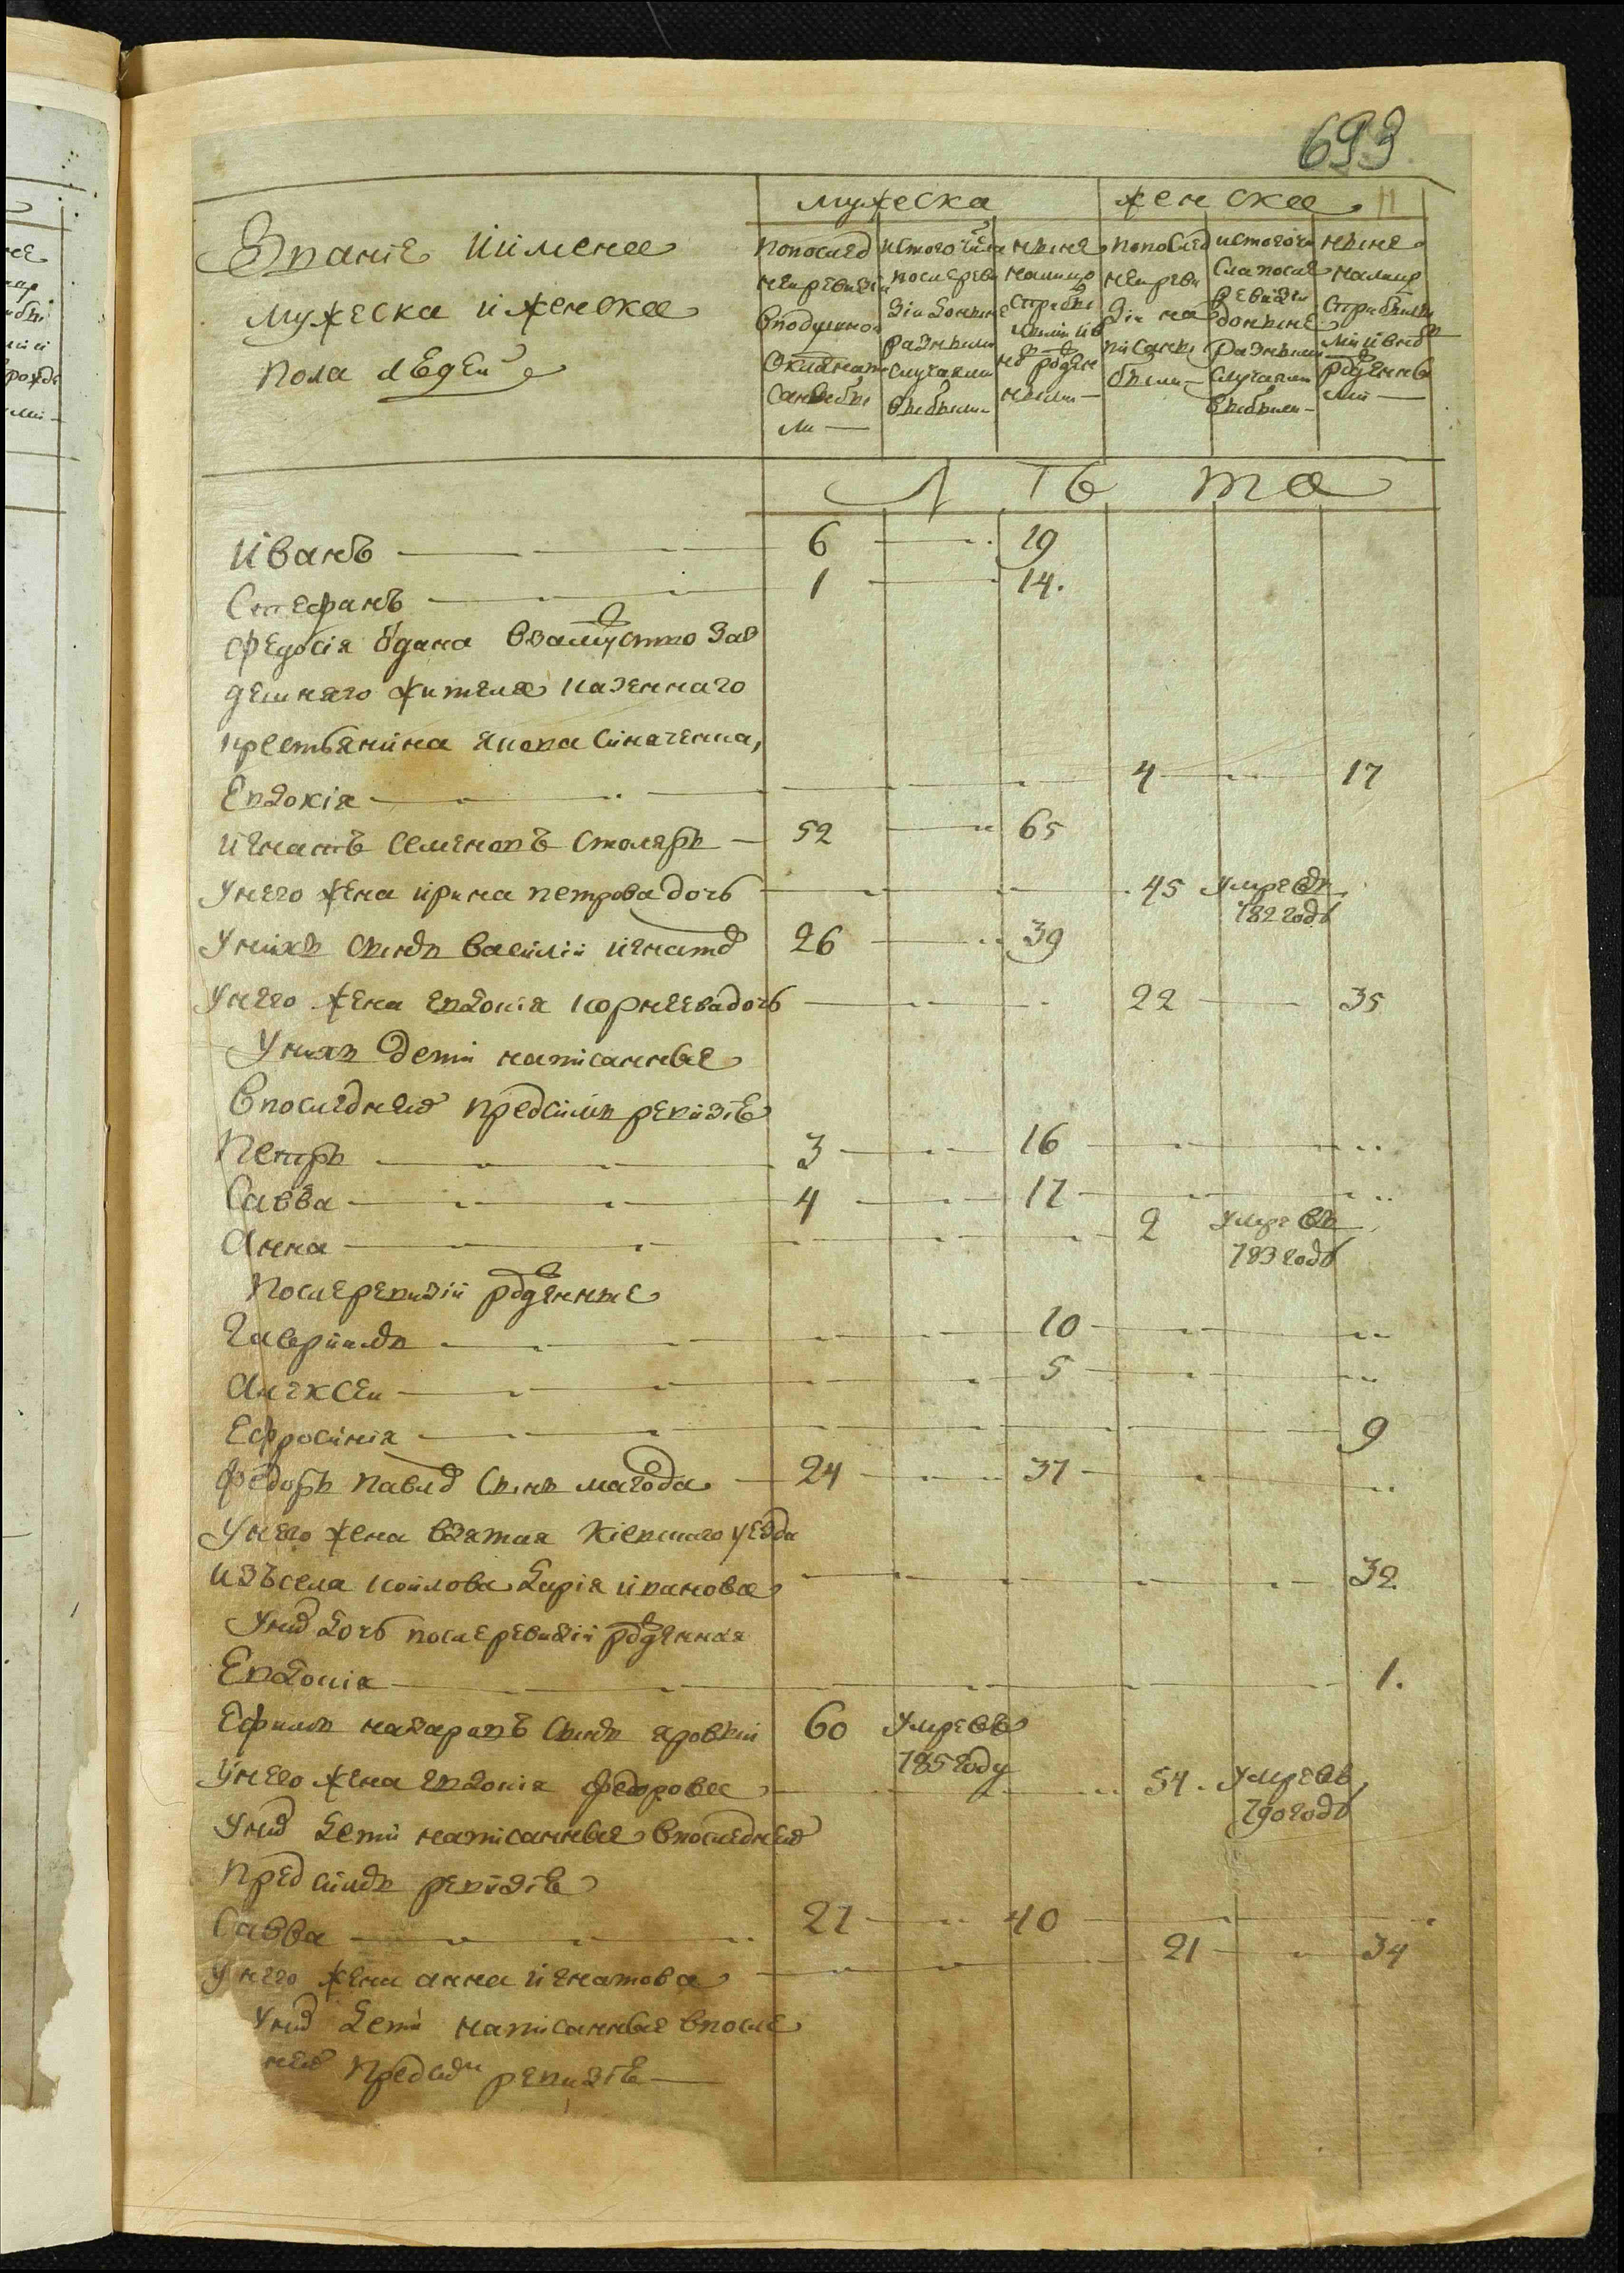 693
мужеска женска 11
Званіе иимена
мужеска иженска
пола людей
попослед
неи ревизіи
вподушном
окладе напи
саны бы
ли —
истого числа
после реви
зіи доныне
разными
случаями
выбыли —
ныне
налицо
стрибы
лыми ив
новорожден
ными —
попослед
неи реви
зіи на
писаны
были —
истого чи
сла после
ревизіи
доныне
разными
случаями
выбыли —
ныне
налицо
стрибылы
ми ивнов
рожденны
ми —
Лѣта
Иванъ 6 19
Стефанъ 1 14.
Федосія Одана взамуство заз
дешняго жителя казеннаго
крестьянина Якова Симаченка,
Евдокія 4 17
Игнатъ Семеновъ Столяръ 52 65
Унего жена Ирина Петрова дочь 45 умре въ
782 годѣ
Унихъ сынъ Василій Игнатов 26 39
Унего жена Евдокія Корнеева дочь 22 35
Унихъ дети написанные
Впоследней предсимъ ревизіе
Петръ 3 16
Савва 4 17
Анна 2 умре въ
783 годѣ
После ревизіи рожденные
Гавріилъ 10
Алексеи 5
Ефросинія 9
Федоръ Павлов сынъ магода 24 37
Унего жена взятая Кіевскаго уезда
Изъ села Койлова Дарія Иванова 32
Уних дочь после ревизіи рожденная
Евдокія 1.
Ефимъ Назаровъ сынъ яровый 60 умре въ
785 году
Унего жена Евдокія Федорова 54. умре въ
790 годѣ
Уних дети написанные впоследней
Пред симъ ревизіе
Савва 27 40
Унего жена Анна Игнатова 21 34
Уних дети написанные впосле
ней пред сим ревизіе —